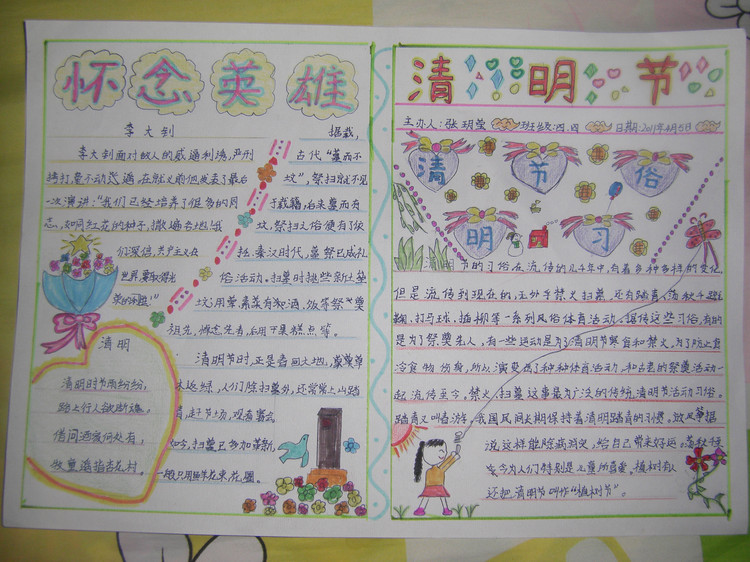 怀念英雄
李大钊
李大钊面对敌人的威逼利诱,严刑
拷打毫不动摇,在就义前他发表了最后
一次演讲:"我们已经培养了很多的同
志,如同红花的种子,撒遍各地!我
们深信,共产主义在
世界
清明
清明时节雨纷纷,
路上行人欲断魂。
借问酒家何处有,
牧童遥指杏花村。
据载,
古代"墓而不
坟",祭扫就不见
于载籍,后来墓而有
坟,祭扫之俗便有了依
托。秦汉时代,墓祭已成礼
俗活动。扫墓时
祖先,
清明时节,正是春回大地,
人们除扫墓外,还常常上山踏
青,
如今,扫墓已多加革新,
一般只用鲜花束、花圈。
清明节
主办人:张玥莹 班级:四.四 日期:2011年4月5日
清 节 俗
明 习
清明节的习俗在流传的几千年中,有着多种多样的变化,
但是流传到现在的,王外乎禁火扫墓,还有踏青、荡秋千、蹴
鞠、打马球、插柳等一系列风俗体育活动。据传这些习俗,有的
是为了祭奠先人,有一些运动是为了清明节要寒食和禁火,为了防止寒
冷食物伤身,所以演变成了种种体育活动,和古老的祭奠活动一
起流传至今,禁火、扫墓这事最为广泛的传统清明节活动习俗。
踏青又叫春游,我国民间长期保持着清明踏青的习惯。放风筝据
说这样能除病消灾,给自己带来好运。荡秋千
至今为人们特别是儿童所喜爱。植树有人
还把清明节叫作"植树节"。